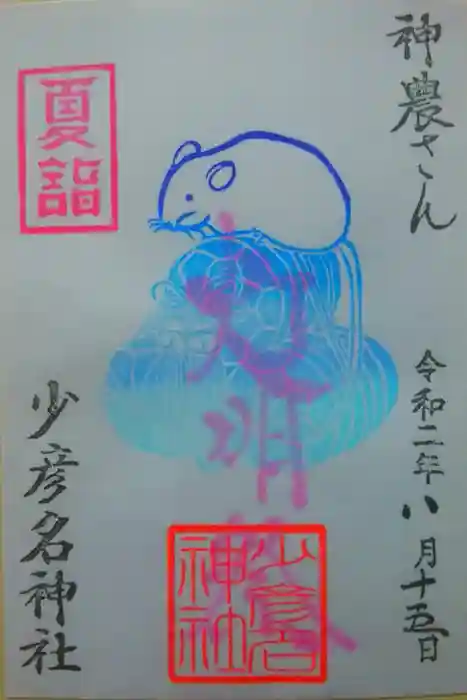 神農さん
令和二年八月十五日
夏詣
少彦名神社
少彦名
神社